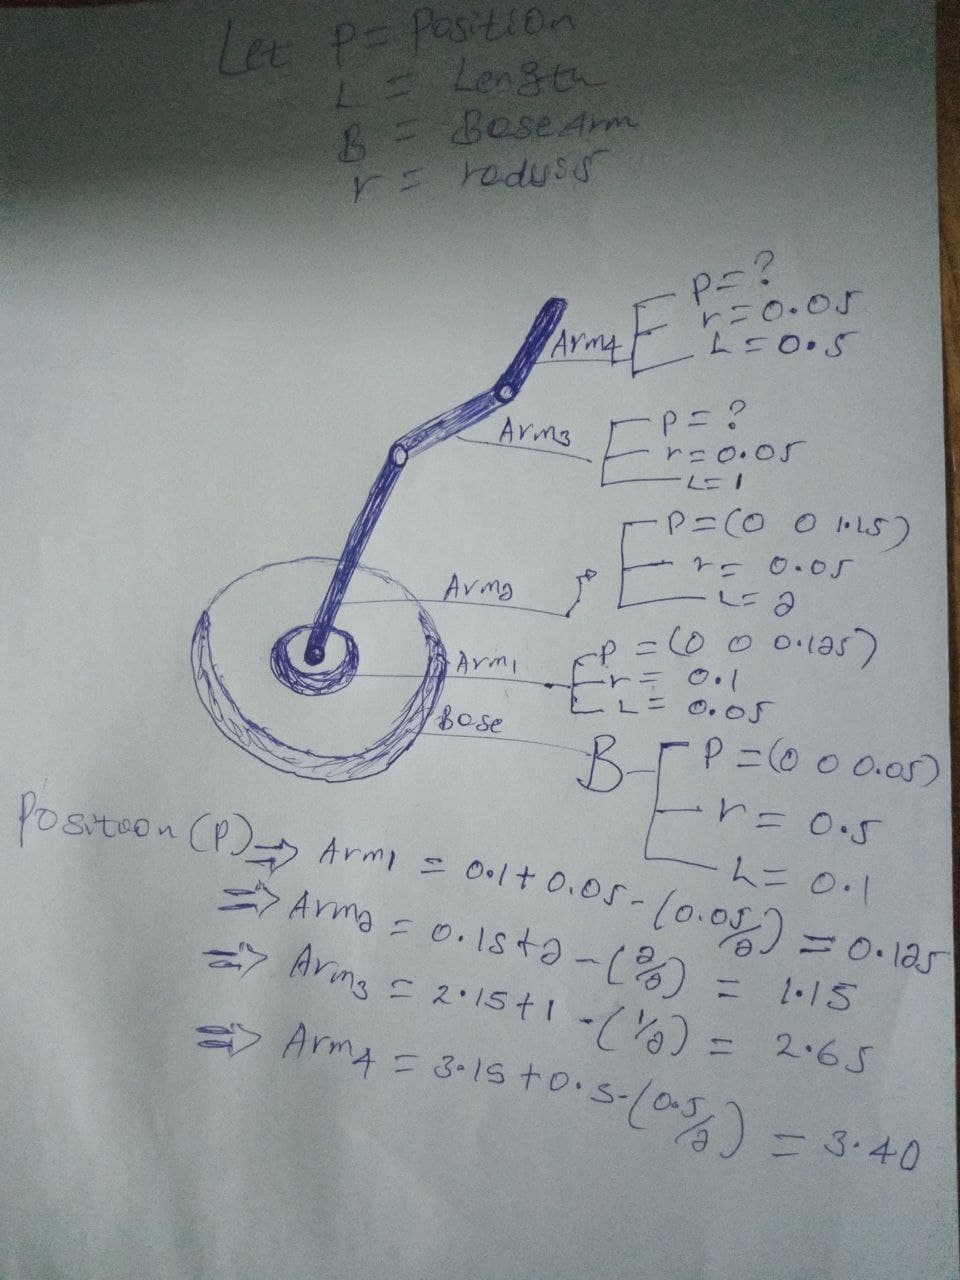 Let P = Position
L = Length
B = Base Arm
r = raduss
Arm4
P = ?
r = 0.05
L = 0.5
Arm3
P = ?
r = 0.05
L = 1
Arm2
P = (0 0 1.15)
r = 0.05
L = 2
Arm1
P = (0 0 0.125)
r = 0.1
L = 0.05
Base
B
P = (0 0 0.05)
r = 0.5
L = 0.1
Position (P) ⇒ Arm1 = 0.1 + 0.05 - (0.05/2) = 0.125
⇒ Arm2 = 0.15 + 2 - (2/2) = 1.15
⇒ Arm3 = 2.15 + 1 - (1/2) = 2.65
⇒ Arm4 = 3.15 + 0.5 - (0.5/2) = 3.40